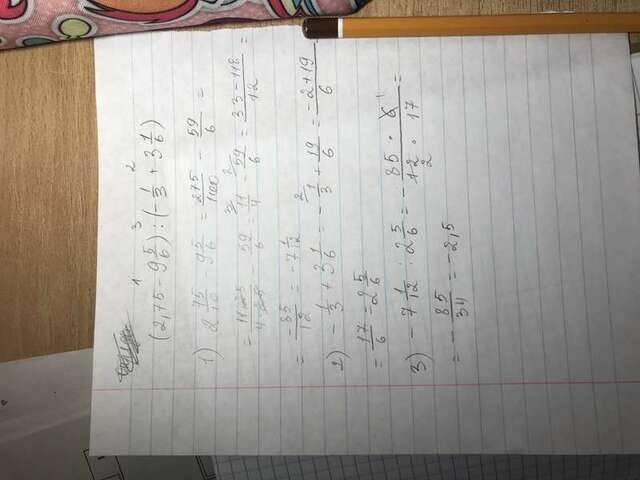 1 3 2
(2,75 - 9 5/6) : (- 1/3 + 3 1/6)
1) 2 75/100 - 9 5/6 = 275/100 - 59/6 =
= 11/4 - 59/6 = 11/4 - 59/6 = 33-118/12 =
= -85/12 = -7 1/12
2) - 1/3 + 3 1/6 = - 1/3 + 19/6 = -2+19/6
= 17/6 = 2 5/6
3) - 7 1/12 : 2 5/6 = - 85 · 6 1/12 · 17 =
2
= - 85/34 = -2,5